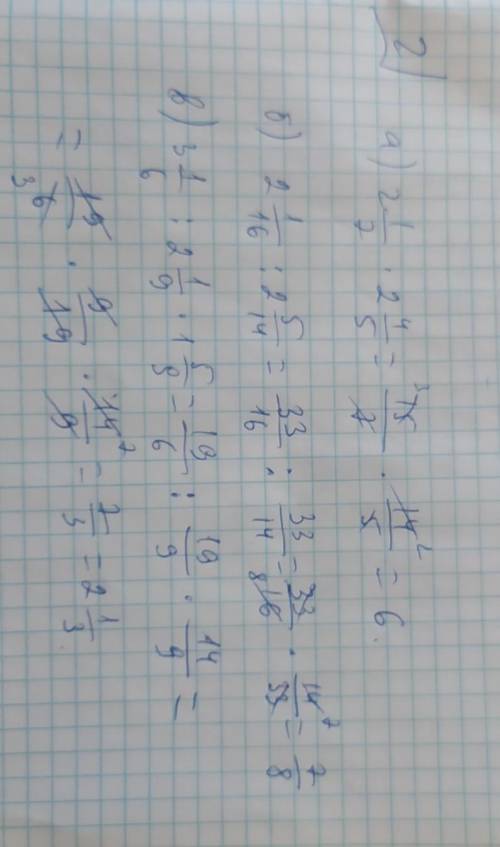 2)
а) 2 1/7 · 2 4/5 = 15³/7 · 14²/5 = 6.
б) 2 1/16 : 2 5/14 = 33/16 : 33/14 = 33/16₈ · 14⁷/33 = 7/8
в) 3 1/6 : 2 1/9 · 1 5/9 = 19/6 : 19/9 · 14/9 =
= 19/6₃ · 9/19 · 14⁷/9 = 7/3 = 2 1/3